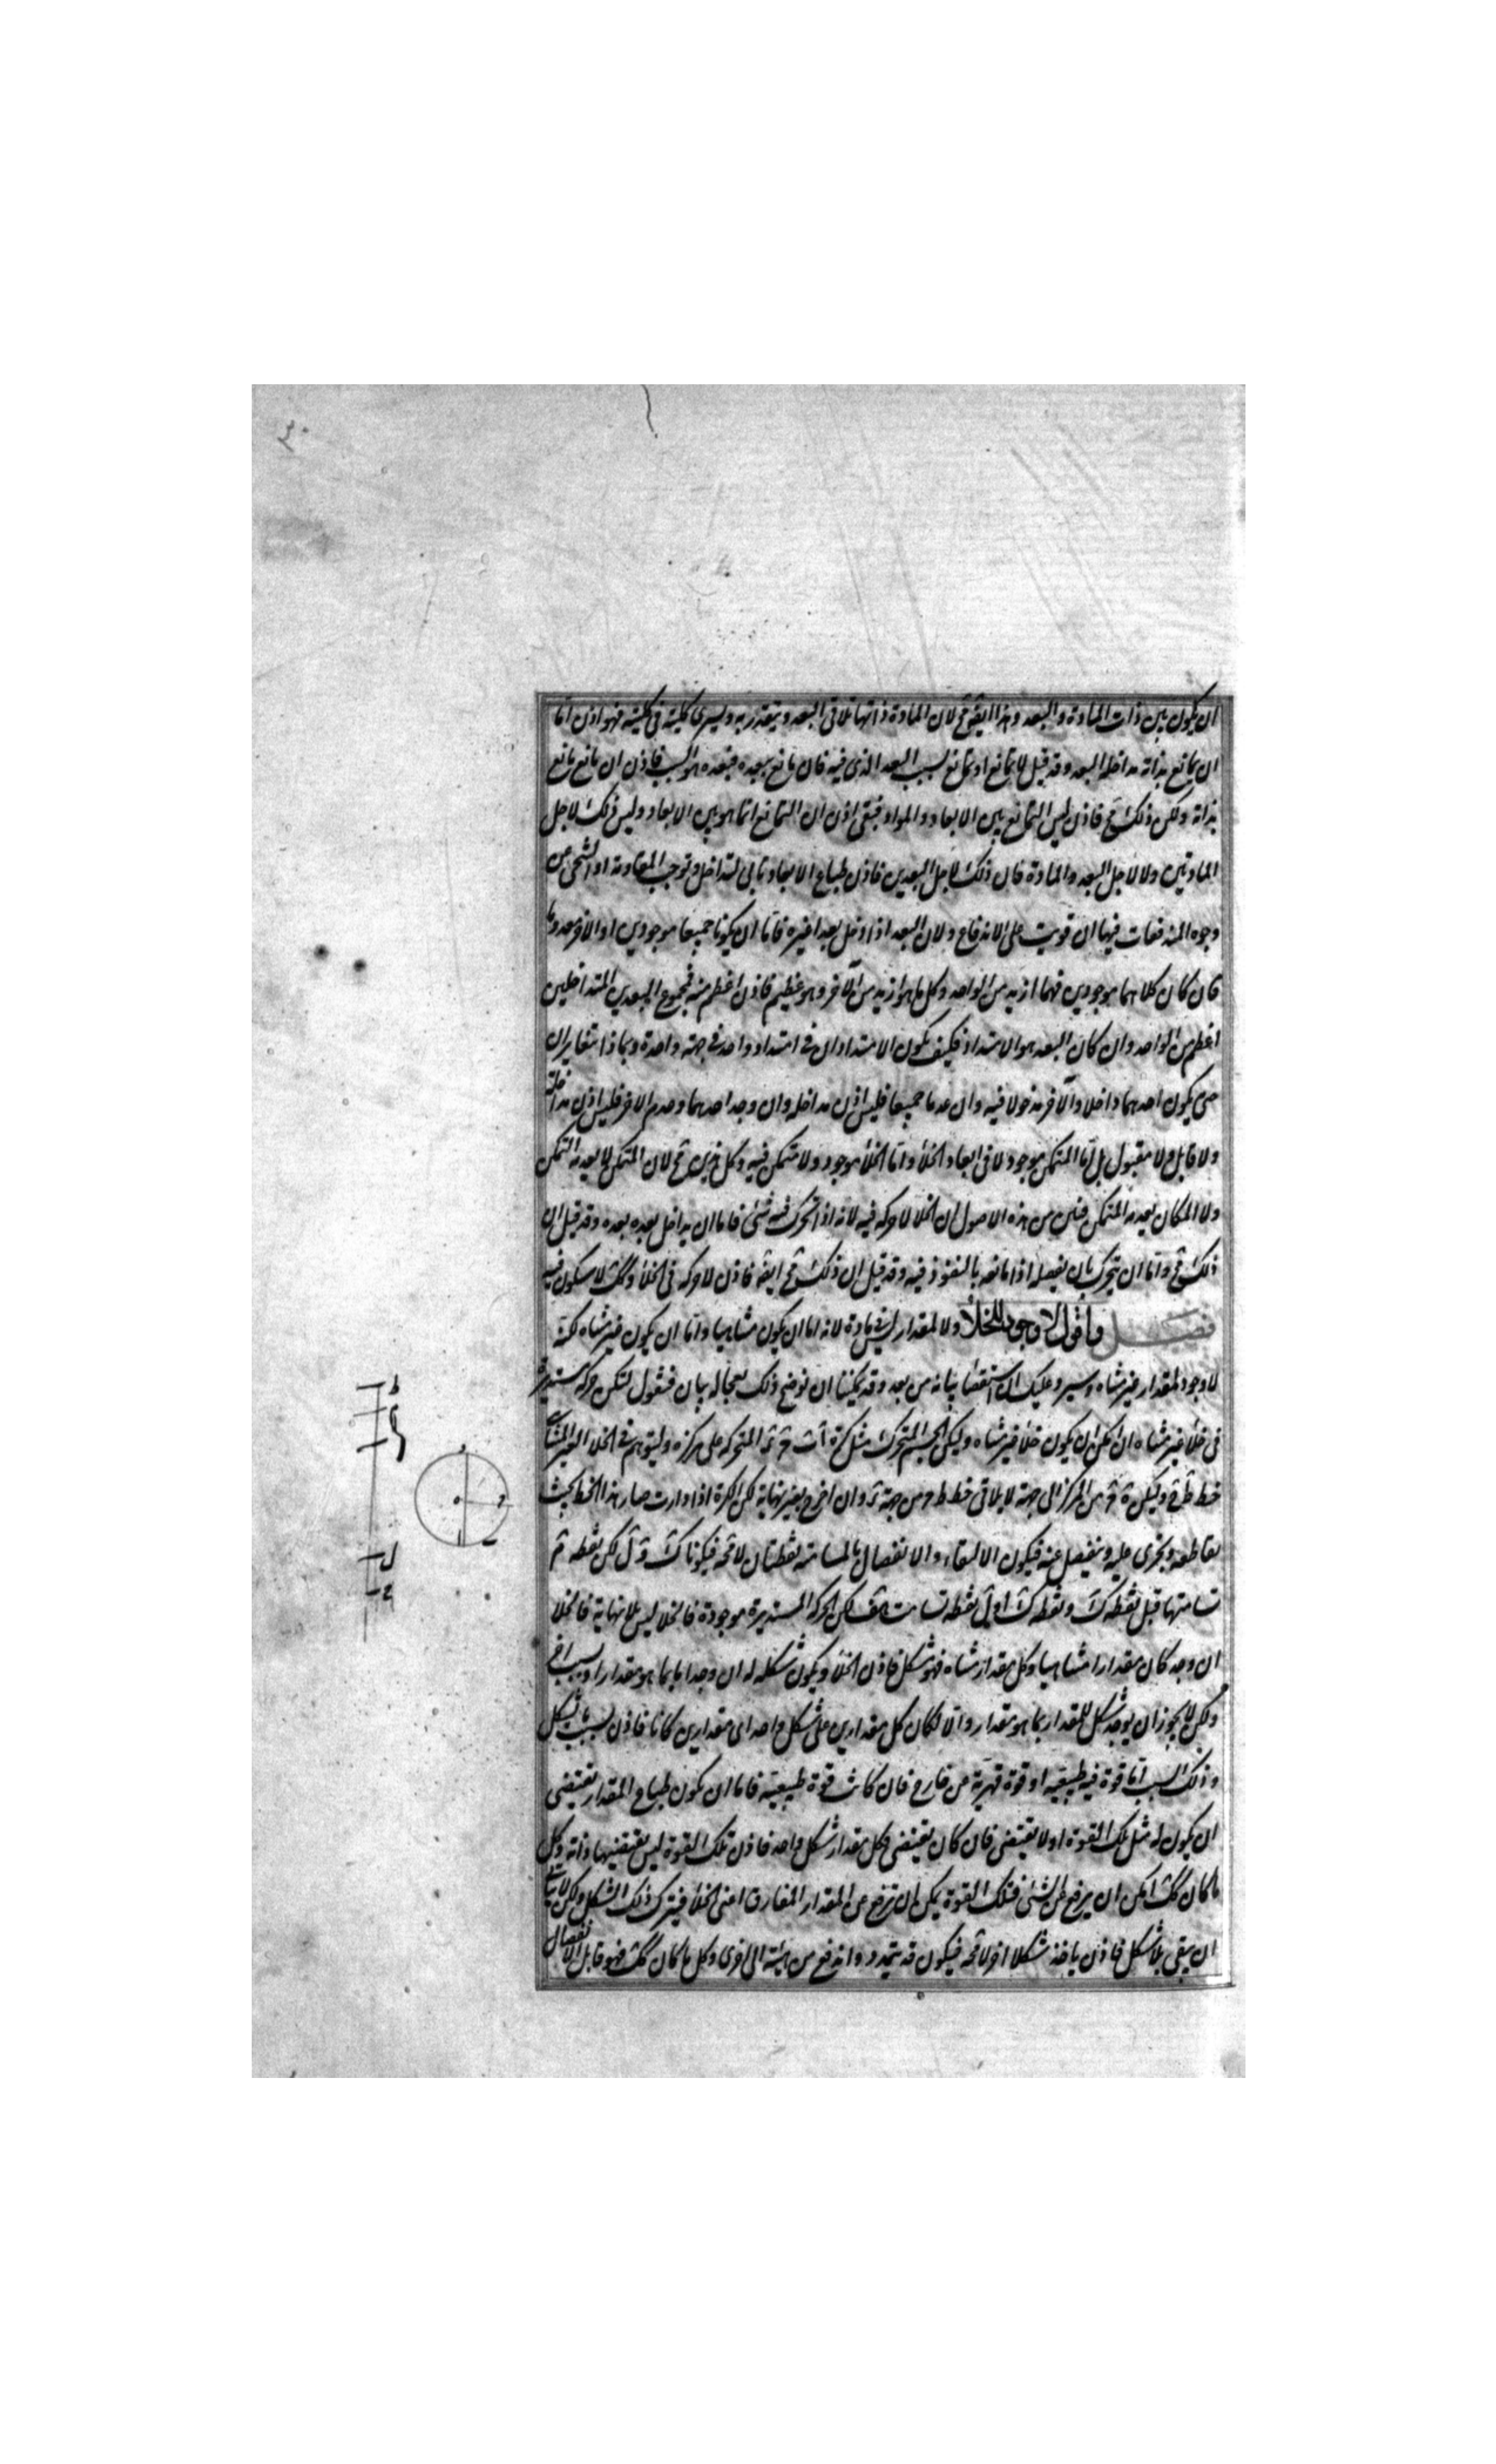 ٣٠
ان يكون بين ذات المادة والبعد وهذا ايضۤ مح لان المادة ذاتها تلاقى البعد ويتقدر به ويسرى كليته فى كليته فهو اذن اما
ان يمانع بذاته مداخله البعد وقد قيل لا يمانع او يمانع بسبب البعد الذى فيه فان مانع ببعده فبعده هو السبب فاذن ان مانع مانع
بذاته ولكن ذلك مح فاذن ليس التمانع بين الابعاد والمواد فبقى اذن ان التمانع انما هو بين الابعاد وليس ذلك لاجل
المادتين ولا لاجل البعد والمادة فان ذلك لاجل البعدين فاذن طباع الابعاد تابى التداخل وتوجب المقاومة او التنحى عن
وجوه المندفعات فيها ان قويت على الاندفاع ولان البعد اذا دخل بعدا غيره فاما ان يكونا جميعا موجودين او الاخر معدوما
فان كان كلاهما موجودين فهما ازيد من الواحد وكل ما هو ازيد من الآخر وهو عظيم فاذن اعظم منه فمجموع البعدين المتداخلين
اعظم من الواحد وان كان البعد هو الامتداد فكيف يكون الامتدادان فى امتداد واحد فى جهة واحدة وبماذا يتغايران
حتى يكون احدهما داخلا والآخر مدخولا فيه وان عدما جميعا فليس اذن مداخله وان وجد احدهما وعدم الاخر فليس اذن مداخلة
ولا قابل ولا مقبول بل اما المتمكن موجود لا فى ابعاد الخلأ واما الخلأ موجود ولا متمكن فيه وكل هذين مح لان المتمكن لا يعدمه التمكن
ولا المكان يعدمه المتمكن فبين من هذه الاصول ان الخلا لا حركه فيه لانه اذا تحرك فيه شئ فاما ان يداخل بعده بعده وقد قيل ان
ذلك مح واما ان يتحرك بان يفصله اذا مانعه بالنفوذ فيه وقد قيل ان ذلك مح ايضۤ فاذن لا حركه فى الخلأ وكك لا سكون فيه
فصـل واقول لا وجود للخلأ ولا لمقدار ليس بمادة لانه اما ان يكون متناهيا واما ان يكون غير متناه لكنه
لا وجود لمقدار غير متناه وسيرد عليك استقصا بيانه من بعد وقد يمكننا ان نوضح ذلك بعجاله بيان فنقول لتكن حركه مستديرة
فى خلأ غير متناه ان امكن ان يكون خلأ غير متناه وليكن الجسم المتحرك مثل كرة اب ح د المتحركه على مركزه وليتوهم فى الخلأ الغير المتناهى
خط ط ح وليكن ه ح من المركز الى جهة لا يلاقى خط ط ح من جهة د وان اخرج بغير نهاية لكن الكرة اذا دارت صار هذا الخط بحيث
يقاطعه ويجرى عليه وينفصل عنه فيكون الالتقاء والانفصال بالمسامته نقطتان لا محه فيكونا ك و ل لكن نقطه م
تسامتها قبل نقطه ك ونقطه ك اول نقطه تسامت هف لكن الحركه المستديرة موجودة فالخلا ليس بلا نهاية فالخلا
ان وجد كان مقدارا متناهيا وكل مقدار متناه فهو شكل فاذن الخلأ ويكون شكله له ان وجد اما بما هو مقدار او بسبب اخر
ولكن لا يجوز ان يوجد شكل للمقدار بما هو مقدار والا لكان كل مقدارين على شكل واحد اى مقدارين كانا فاذن بسبب ما تشكل
وذلك السبب اما قوة فيه طبيعيه او قوة قهرية من خارج فان كانت قوة طبيعية فاما ان يكون طباع المقدار يقتضى
ان يكون له مثل تلك القوة او لا يقتضى فان كان يقتضى فكل مقدار شكل واحد فاذن تلك القوة ليس يقتضيها ذاته وكل
ما كان كك امكن ان يرفع عن الشئ فتلك القوة يمكن ان ترفع عن المقدار المفارق اعنى الخلأ فيترك ذلك الشكل ولكن لا يتاتى
ان يبقى بلا شكل فاذن ياخذ شكلا اخر لا محه فيكون قد تمدد واندفع من هيئة الى اخرى وكل ما كان كك فهو قابل الانفصال
ط
ك
ل
ح
د
ه
ح
ا
ب